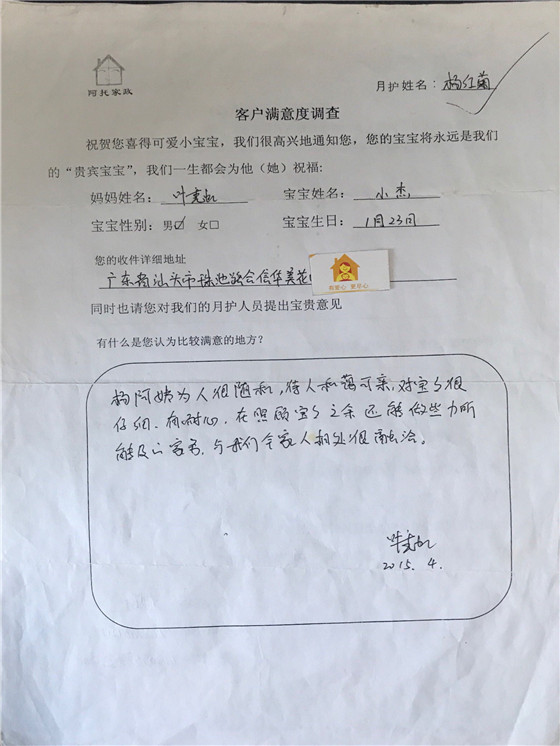 阿托家政
月护姓名：杨红菊
客户满意度调查
祝贺您喜得可爱小宝宝，我们很高兴地通知您，您的宝宝将永远是我们
的“贵宾宝宝”，我们一生都会为他（她）祝福:
妈妈姓名： 叶 宝宝姓名： 小杰
宝宝性别： 男☑ 女□ 宝宝生日： 1月23日
您的收件详细地址
广东省汕头市珠池路合信华美花
有爱心 更尽心
同时也请您对我们的月护人员提出宝贵意见
有什么是您认为比较满意的地方？
杨阿姨为人很随和，待人和蔼可亲，对宝宝很
仔细、有耐心，在照顾宝宝之余还能做些力所
能及的家务，与我们全家人相处很融洽。
叶
2015.4.